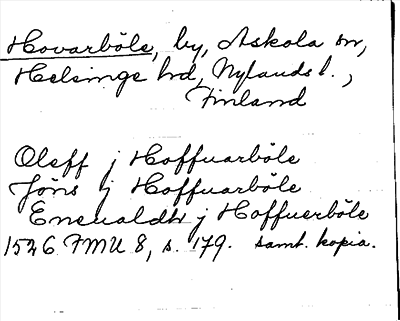 Hovarböle, by, Askola sn,
Helsinge hd, Nylands l.,
Finland
Oleff j Hoffuarböle
Jöns j Hoffuarböle
Eneualdh j Hoffuerböle
1526 FMU 8, s. 179. samt. kopia.